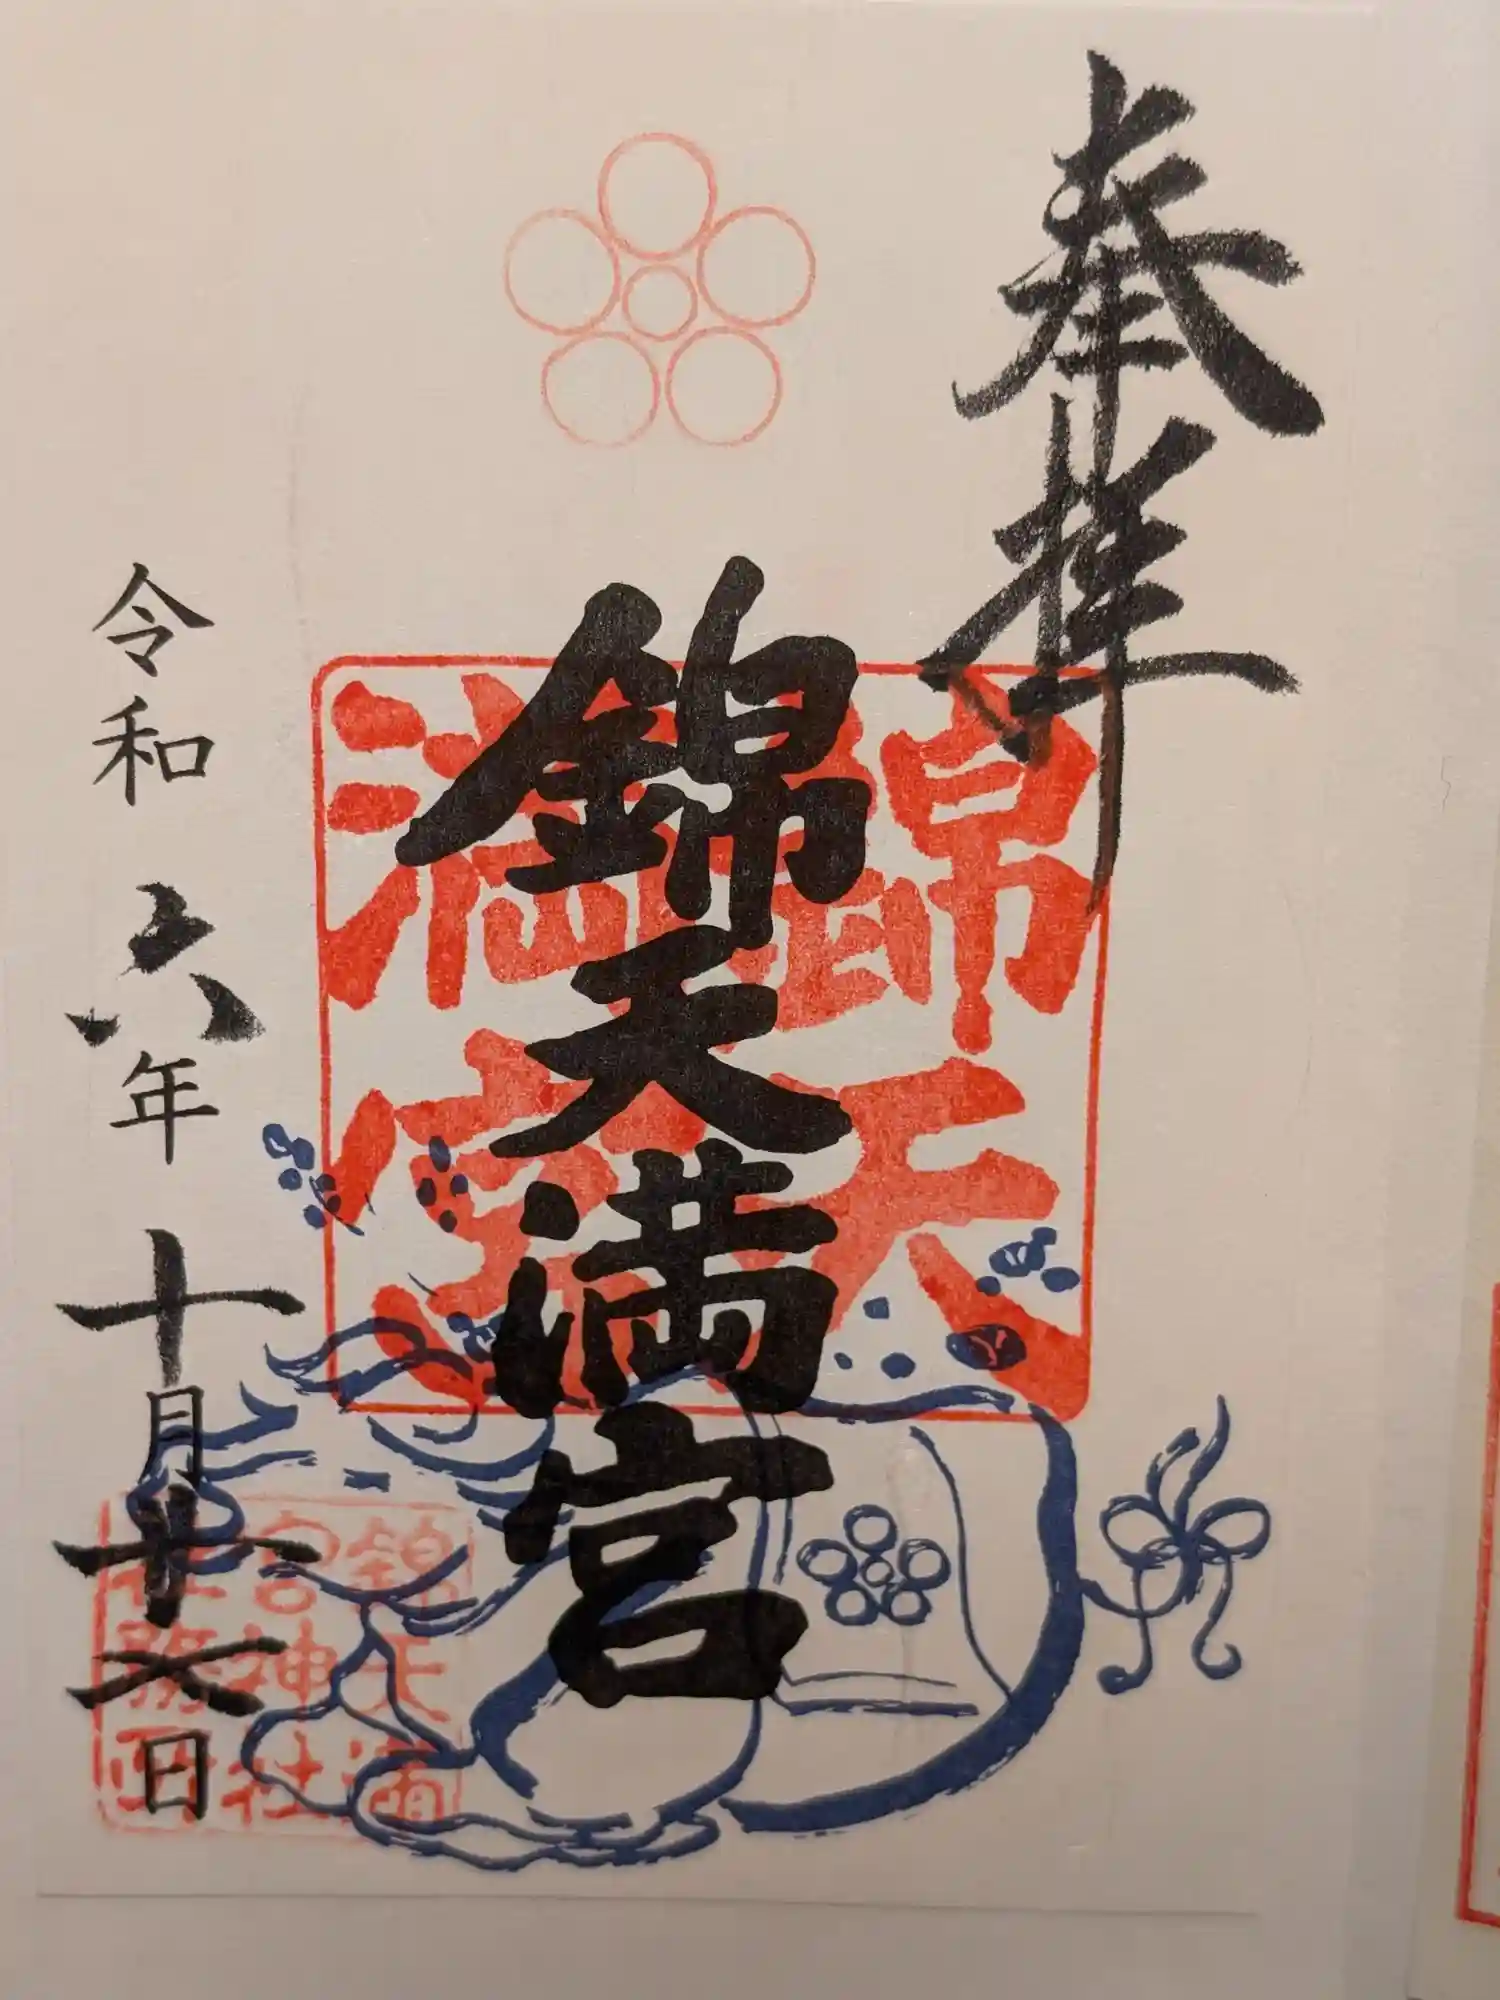 奉拝
錦天満宮
錦天
満宮
令和六年十月 日
錦天満
宮神社
社務所